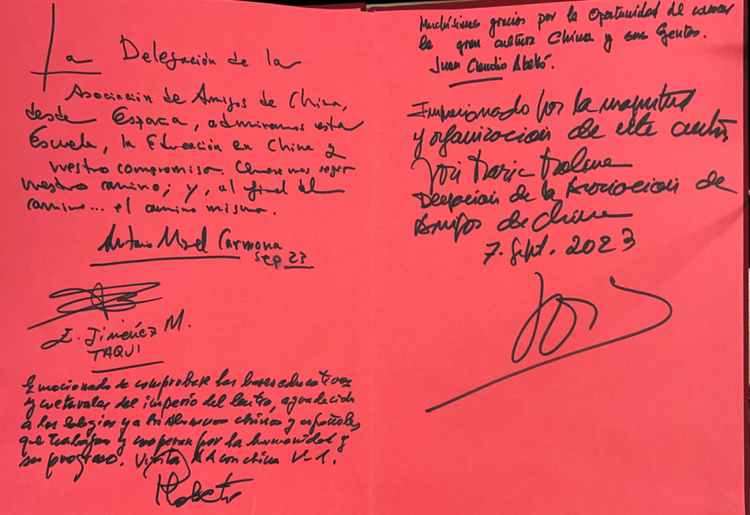 La Delegación de la
Asociación de Amigos de China,
desde España, admiramos esta
Escuela, la Educación en China y
vuestro compromiso. Queremos seguir
vuestro camino; y, al final del
camino... el camino mismo.
Antonio Miguel Carmona
Sep 23
E. Jiménez M.
TAQUI
Emocionado de comprobar las bases educativas
y culturales del imperio del centro, agradecido
a los colegios y a los alumnos chinos y españoles
que trabajan y cooperan por la humanidad y
su progreso. Visita AA con china V-1.
Muchísimas gracias por la oportunidad de conocer
la gran cultura China y sus gentes.
Juan Claudio Abelló.
Impresionado por la magnitud
y organización de este centro
José María
Delegación de la Asociación de
Amigos de China
7. Sept. 2023